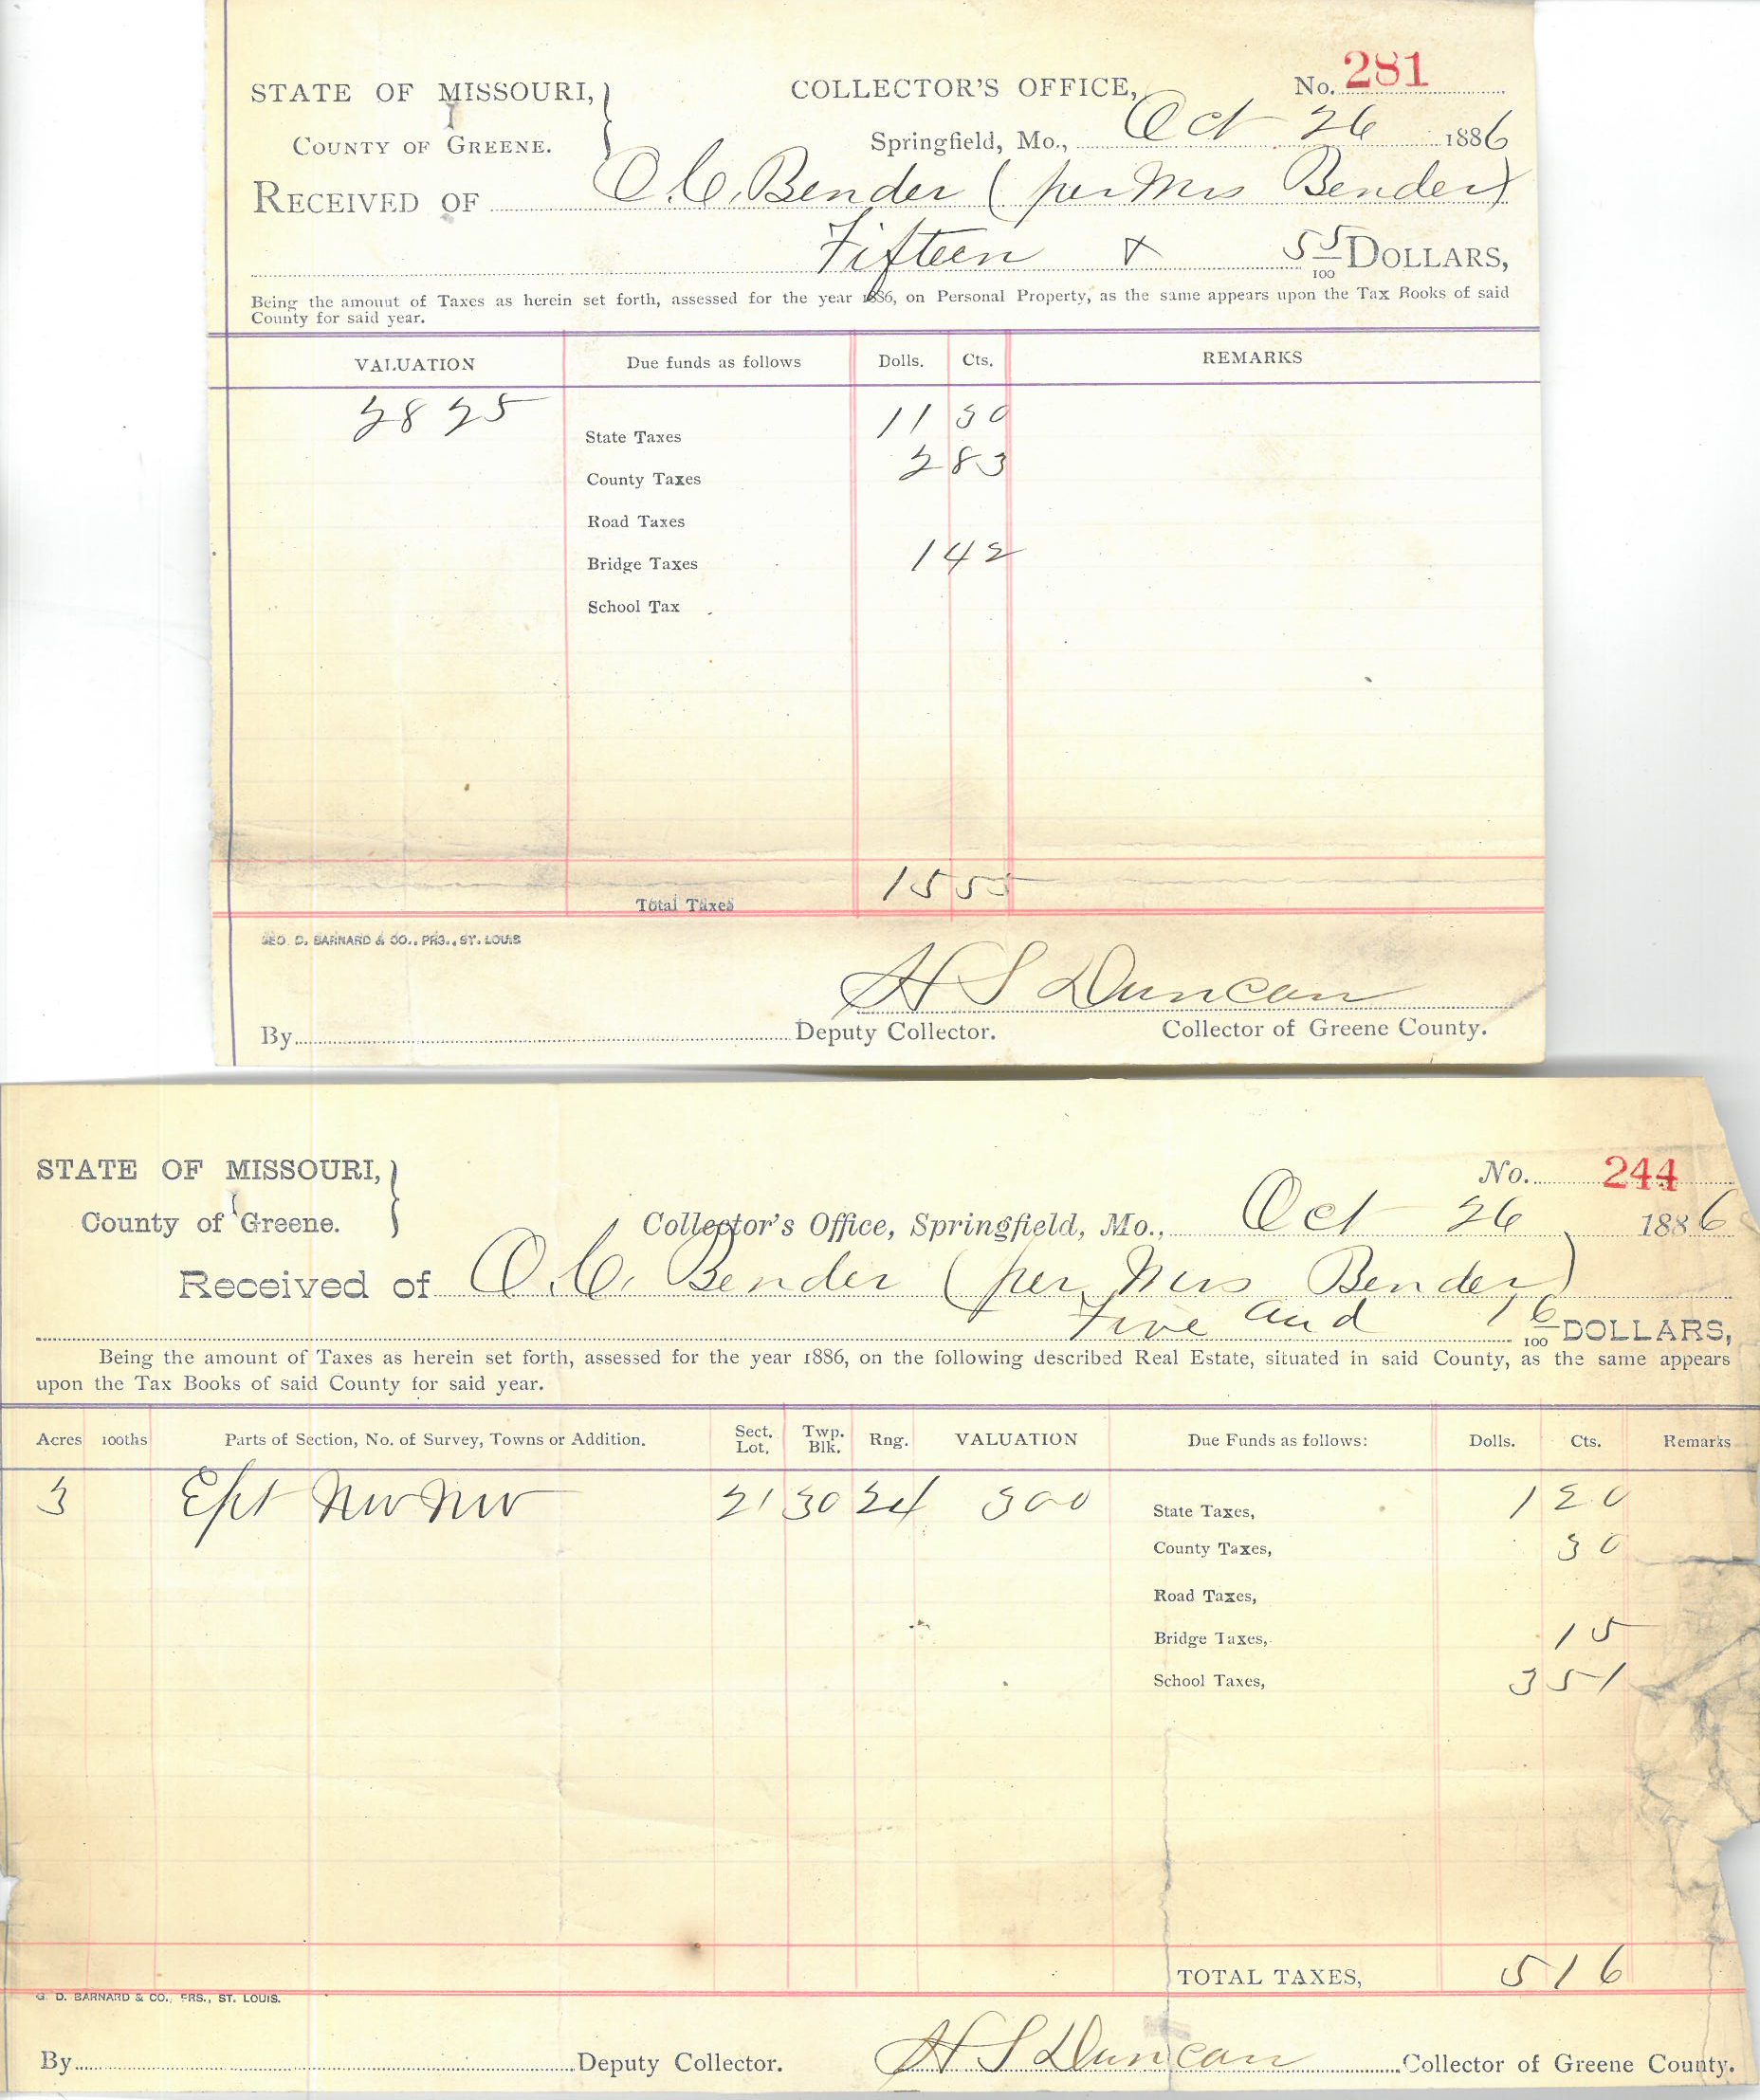 STATE OF MISSOURI, COLLECTOR'S OFFICE, No. 281
COUNTY OF GREENE. Springfield, Mo., Oct 26 1886
RECEIVED OF O. C. Bender (per Mrs Bender)
Fifteen & 55/100 DOLLARS,
Being the amount of Taxes as herein set forth, assessed for the year 1886, on Personal Property, as the same appears upon the Tax Books of said
County for said year.
VALUATION Due funds as follows Dolls. Cts. REMARKS
2825 State Taxes 11 30
County Taxes 2 83
Road Taxes
Bridge Taxes 1 42
School Tax
Total Taxes 15 55
GEO. D. BARNARD & CO., PRS., ST. LOUIS
H S Duncan
By Deputy Collector. Collector of Greene County.
STATE OF MISSOURI, No. 244
County of Greene. Collector's Office, Springfield, Mo., Oct 26 1886
Received of O. C. Bender (per Mrs Bender)
Five and 16/100 DOLLARS,
Being the amount of Taxes as herein set forth, assessed for the year 1886, on the following described Real Estate, situated in said County, as the same appears
upon the Tax Books of said County for said year.
Acres 100ths Parts of Section, No. of Survey, Towns or Addition. Sect. Lot. Twp. Blk. Rng. VALUATION Due Funds as follows: Dolls. Cts. Remarks
3 Ept NW NW 21 30 24 300 State Taxes, 1 20
County Taxes, 30
Road Taxes,
Bridge Taxes, 15
School Taxes, 3 51
TOTAL TAXES, 5 16
G. D. BARNARD & CO., PRS., ST. LOUIS.
By Deputy Collector. H S Duncan Collector of Greene County.